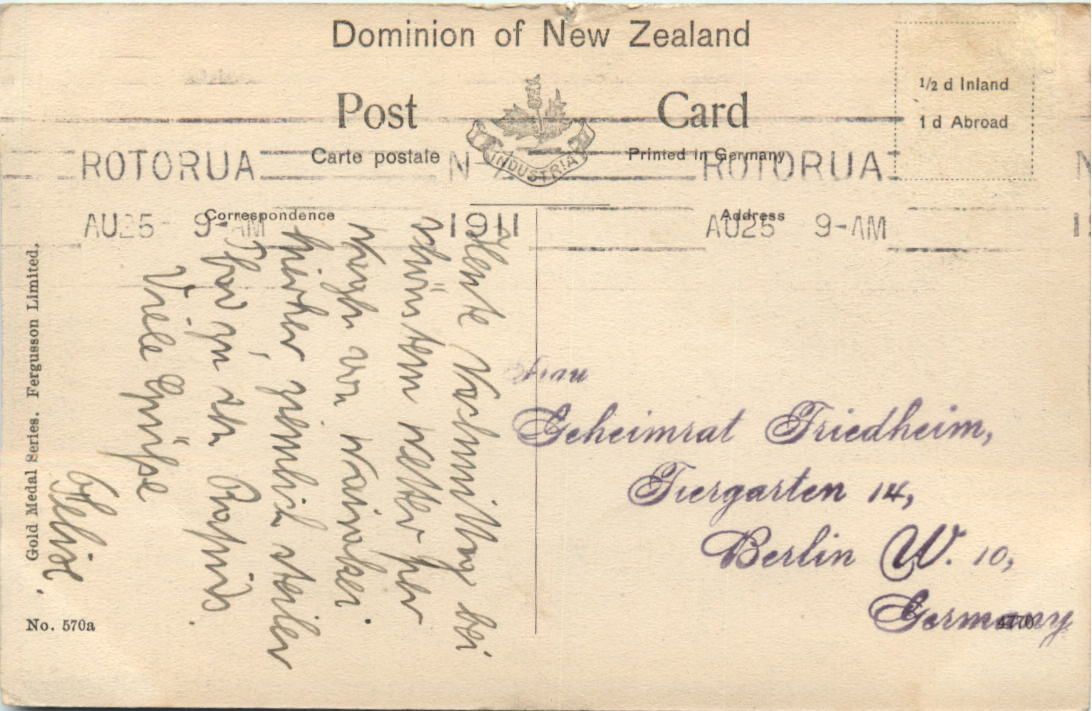 Dominion of New Zealand
Post Card
INDUSTRIA
Carte postale
Printed in Germany
1/2 d Inland
1 d Abroad
ROTORUA N- ROTORUA N
AU25 9-AM 1911 AU25 9-AM 1
Correspondence
Address
Heute Nachmittag bei
schönstem Wetter
von Wairakei
hierher, ziemlich steiler
zu den Rapids.
Viele Grüße
Frau
Geheimrat Friedheim,
Tiergarten 14,
Berlin W. 10,
Germany
Gold Medal Series. Fergusson Limited.
No. 570a